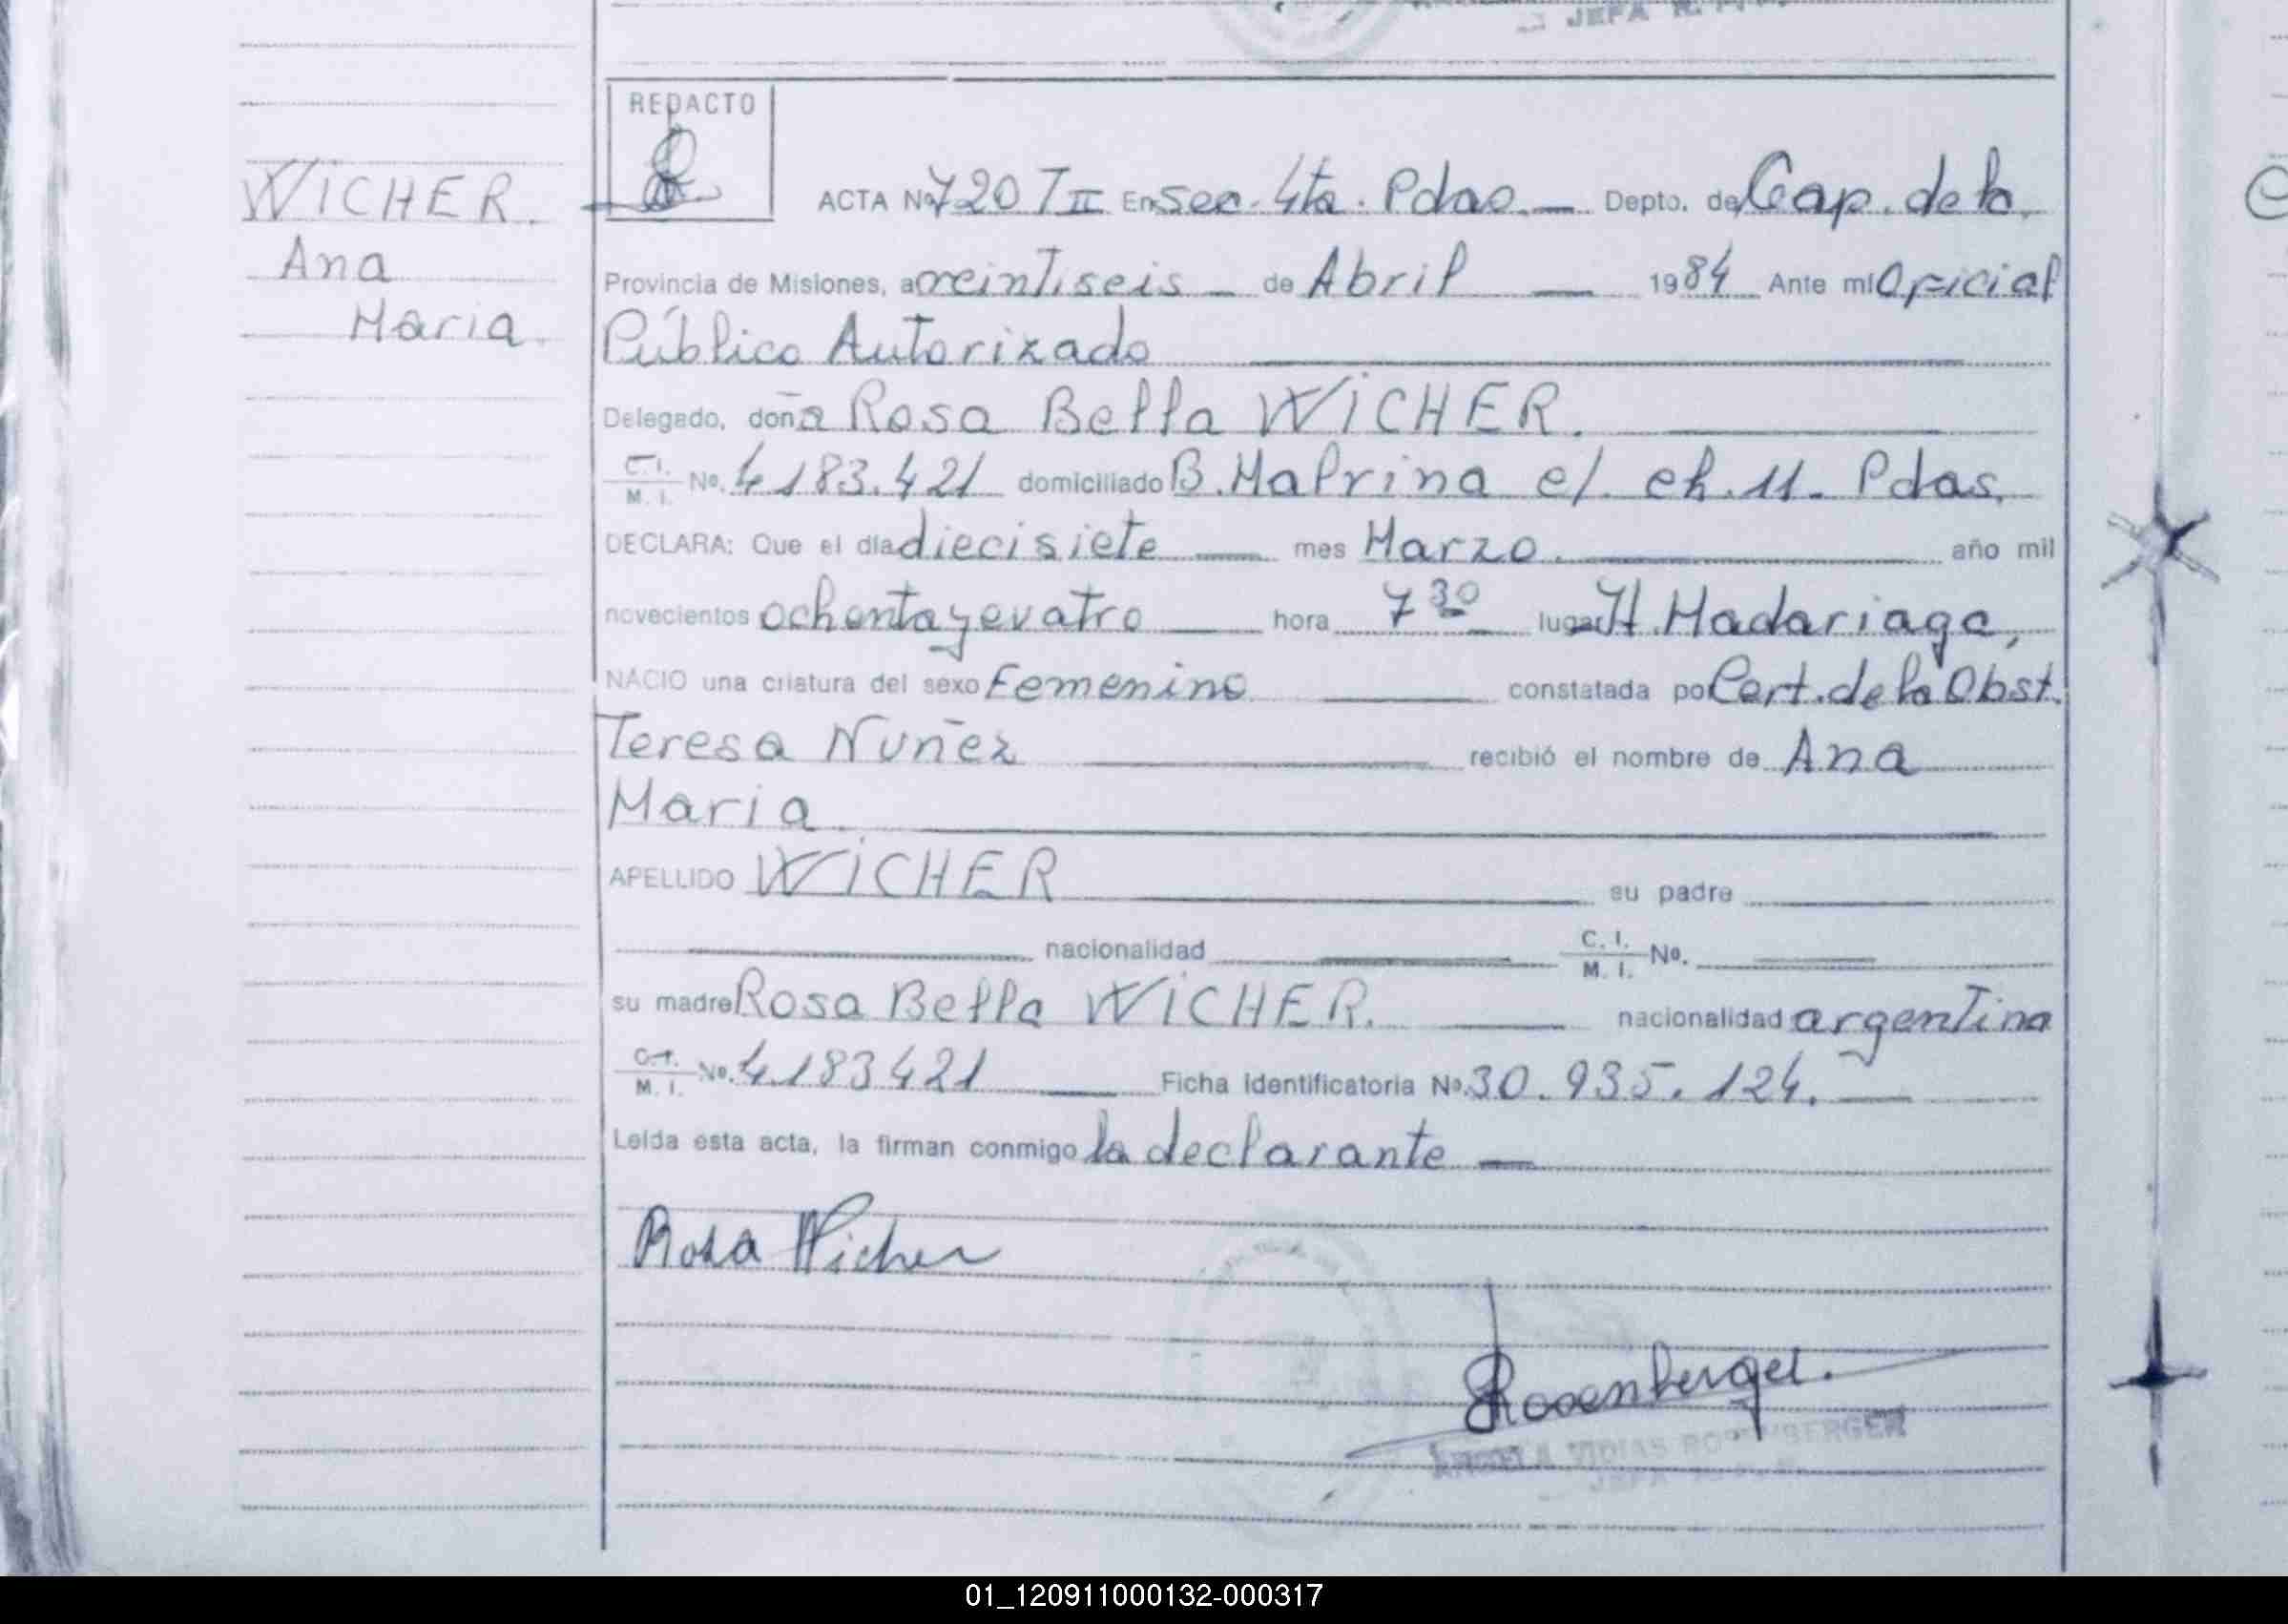 JEFA R. P.
REDACTO
WICHER.
Ana
Maria
ACTA Nº 720 T II En Sec. 4ta. Pdas. — Depto. de Cap. de la
Provincia de Misiones, a veintiseis — de Abril — 1984 Ante mí Oficial
Público Autorizado
Delegado, doña Rosa Bella WICHER.
C. I. M. I. No. 4.183.421 domiciliado B. Malvina e/. ch. 11. Pdas.
DECLARA: Que el día diecisiete — mes Marzo. año mil
novecientos ochenta y cuatro — hora 7 30 lugar H. Madariaga,
NACIO una criatura del sexo Femenino — constatada por Cert. de la Obst.
Teresa Nuñez — recibió el nombre de Ana
Maria
APELLIDO WICHER su padre
nacionalidad C. I. M. I. No.
su madre Rosa Bella WICHER. — nacionalidad argentina
C. I. M. I. No. 4.183.421 — Ficha identificatoria Nº 30.935.124. —
Leída esta acta, la firman conmigo la declarante —
Rosa Wicher
Rosenberger.
ROSENBERGER
JEFA
01_120911000132-000317